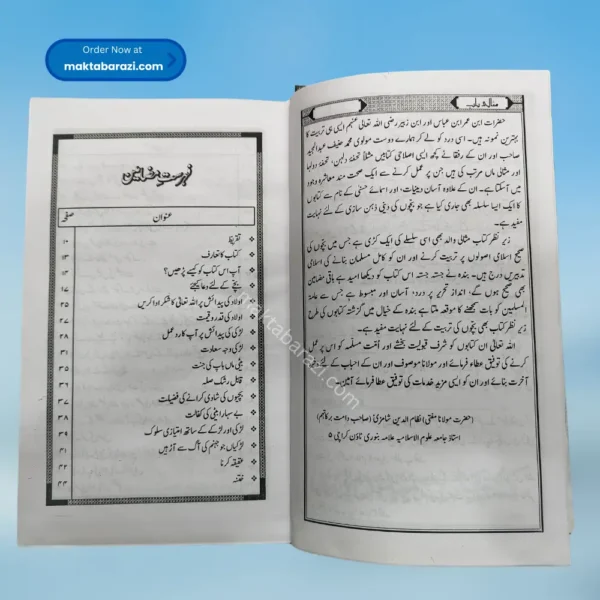 Order Now at
maktabarazi.com
مثالی باپ
حضرات ابن عمر ابن عباس اور ابن زبیر رضی اللہ تعالیٰ عنہم ایسی ہی تربیت کا
بہترین نمونہ ہیں۔ اسی درد کو لے کر ہمارے دوست مولوی محمد حنیف عبدالمجید
صاحب اور ان کے رفقا نے کچھ ایسی اصلاحی کتابیں مثلاً تحفۂ دلہن، تحفۂ دولہا
اور مثالی ماں مرتب کی ہیں جن پر عمل کرنے سے ایک صحت مند معاشرہ وجود
میں آسکتا ہے۔ ان کے علاوہ آسان دینیات، اور اسمائے حسنیٰ کے نام سے کتابوں
کا ایک ایسا سلسلہ بھی جاری کیا ہے جو بچوں کی دینی ذہن سازی کے لئے نہایت
مفید ہے۔
زیر نظر کتاب مثالی والد بھی اسی سلسلے کی ایک کڑی ہے جس میں بچوں کی
صحیح اسلامی اصولوں پر تربیت کرنے اور ان کو کامل مسلمان بنانے کی اسلامی
تدبیریں درج ہیں۔ بندہ نے جستہ جستہ اس کتاب کو دیکھا امید ہے باقی مضامین
بھی صحیح ہوں گے، انداز تحریر پر درد، آسان اور مبسوط ہے جس سے عامۃ
المسلمین کو بات سمجھنے کا موقعہ ملتا ہے بندہ کے خیال میں گزشتہ کتابوں کی طرح
زیر نظر کتاب بھی بچوں کی تربیت کے لئے نہایت مفید ہے۔
اللہ تعالیٰ ان کتابوں کو شرف قبولیت بخشے اور اُمت مسلمہ کو اس پر عمل
کرنے کی توفیق عطاء فرمائے اور مولانا موصوف اور ان کے احباب کے لئے ذخیرۂ
آخرت بنائے اور ان کو ایسی مزید خدمات کی توفیق عطا فرمائے آمین۔
(حضرت مولانا مفتی) نظام الدین شامزئی (صاحب دامت برکاتہم)
استاذ جامعہ علوم الاسلامیہ علامہ بنوری ٹاؤن کراچی ۵
فہرست مضامین
عنوان صفحہ
تقریظ ۱۰
کتاب کا تعارف ۱۳
آپ اس کتاب کو کیسے پڑھیں؟ ۱۴
بچے کے لئے دعا کیجئے ۱۷
اولاد کی پیدائش پر اللہ تعالیٰ کا شکر ادا کریں ۲۵
اولاد کی قدر و قیمت ۲۷
لڑکی کی پیدائش پر آپ کا رد عمل
لڑکی وجہ سعادت
بیٹی ماں باپ کی جنت
قابل رشک صلہ
بچیوں کی شادی کرانے کی فضیلت
بے سہارا بیٹی کی کفالت ۳۸
لڑکی اور لڑکے کے ساتھ امتیازی سلوک ۳۹
لڑکیاں جو جہنم کی آگ سے آڑ ہیں
عقیقہ کرنا ۴۲
ختنہ ۴۴
maktabarazi.com